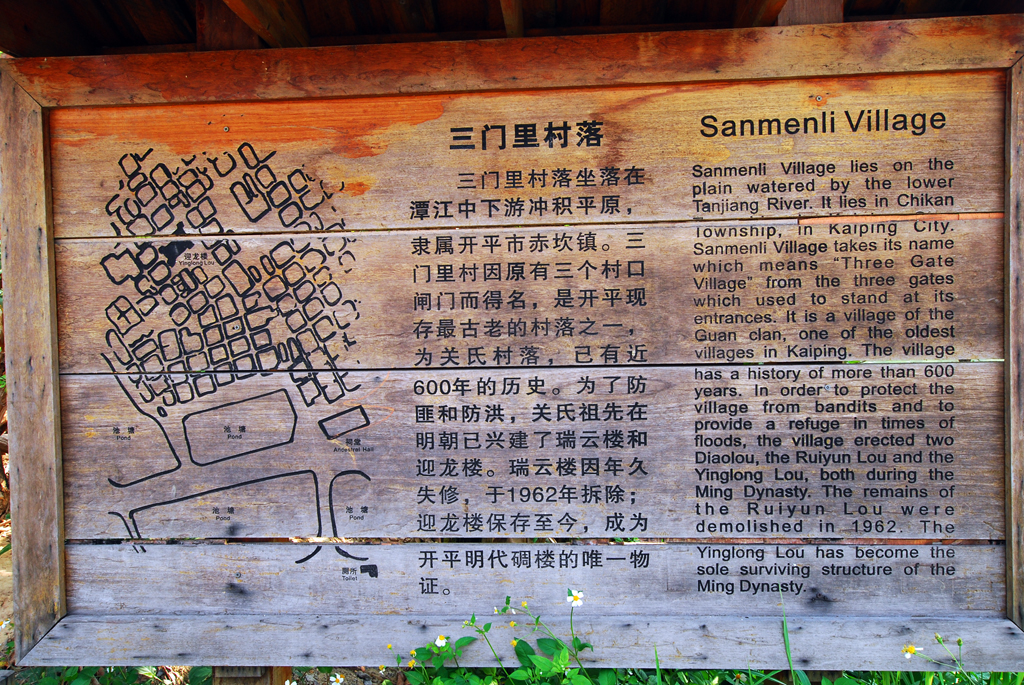 三门里村落
三门里村落坐落在
潭江中下游冲积平原，
隶属开平市赤坎镇。三
门里村因原有三个村口
闸门而得名，是开平现
存最古老的村落之一，
为关氏村落，已有近
600年的历史。为了防
匪和防洪，关氏祖先在
明朝已兴建了瑞云楼和
迎龙楼。瑞云楼因年久
失修，于1962年拆除；
迎龙楼保存至今，成为
开平明代碉楼的唯一物
证。
Sanmenli Village
Sanmenli Village lies on the
plain watered by the lower
Tanjiang River. It lies in Chikan
Township, in Kaiping City.
Sanmenli Village takes its name
which means “Three Gate
Village” from the three gates
which used to stand at its
entrances. It is a village of the
Guan clan, one of the oldest
villages in Kaiping. The village
has a history of more than 600
years. In order to protect the
village from bandits and to
provide a refuge in times of
floods, the village erected two
Diaolou, the Ruiyun Lou and the
Yinglong Lou, both during the
Ming Dynasty. The remains of
the Ruiyun Lou were
demolished in 1962. The
Yinglong Lou has become the
sole surviving structure of the
Ming Dynasty.
迎龙楼
Yinglong Lou
池 塘
Pond
池 塘
Pond
祠堂
Ancestral Hall
池 塘
Pond
池 塘
Pond
厕所
Toilet